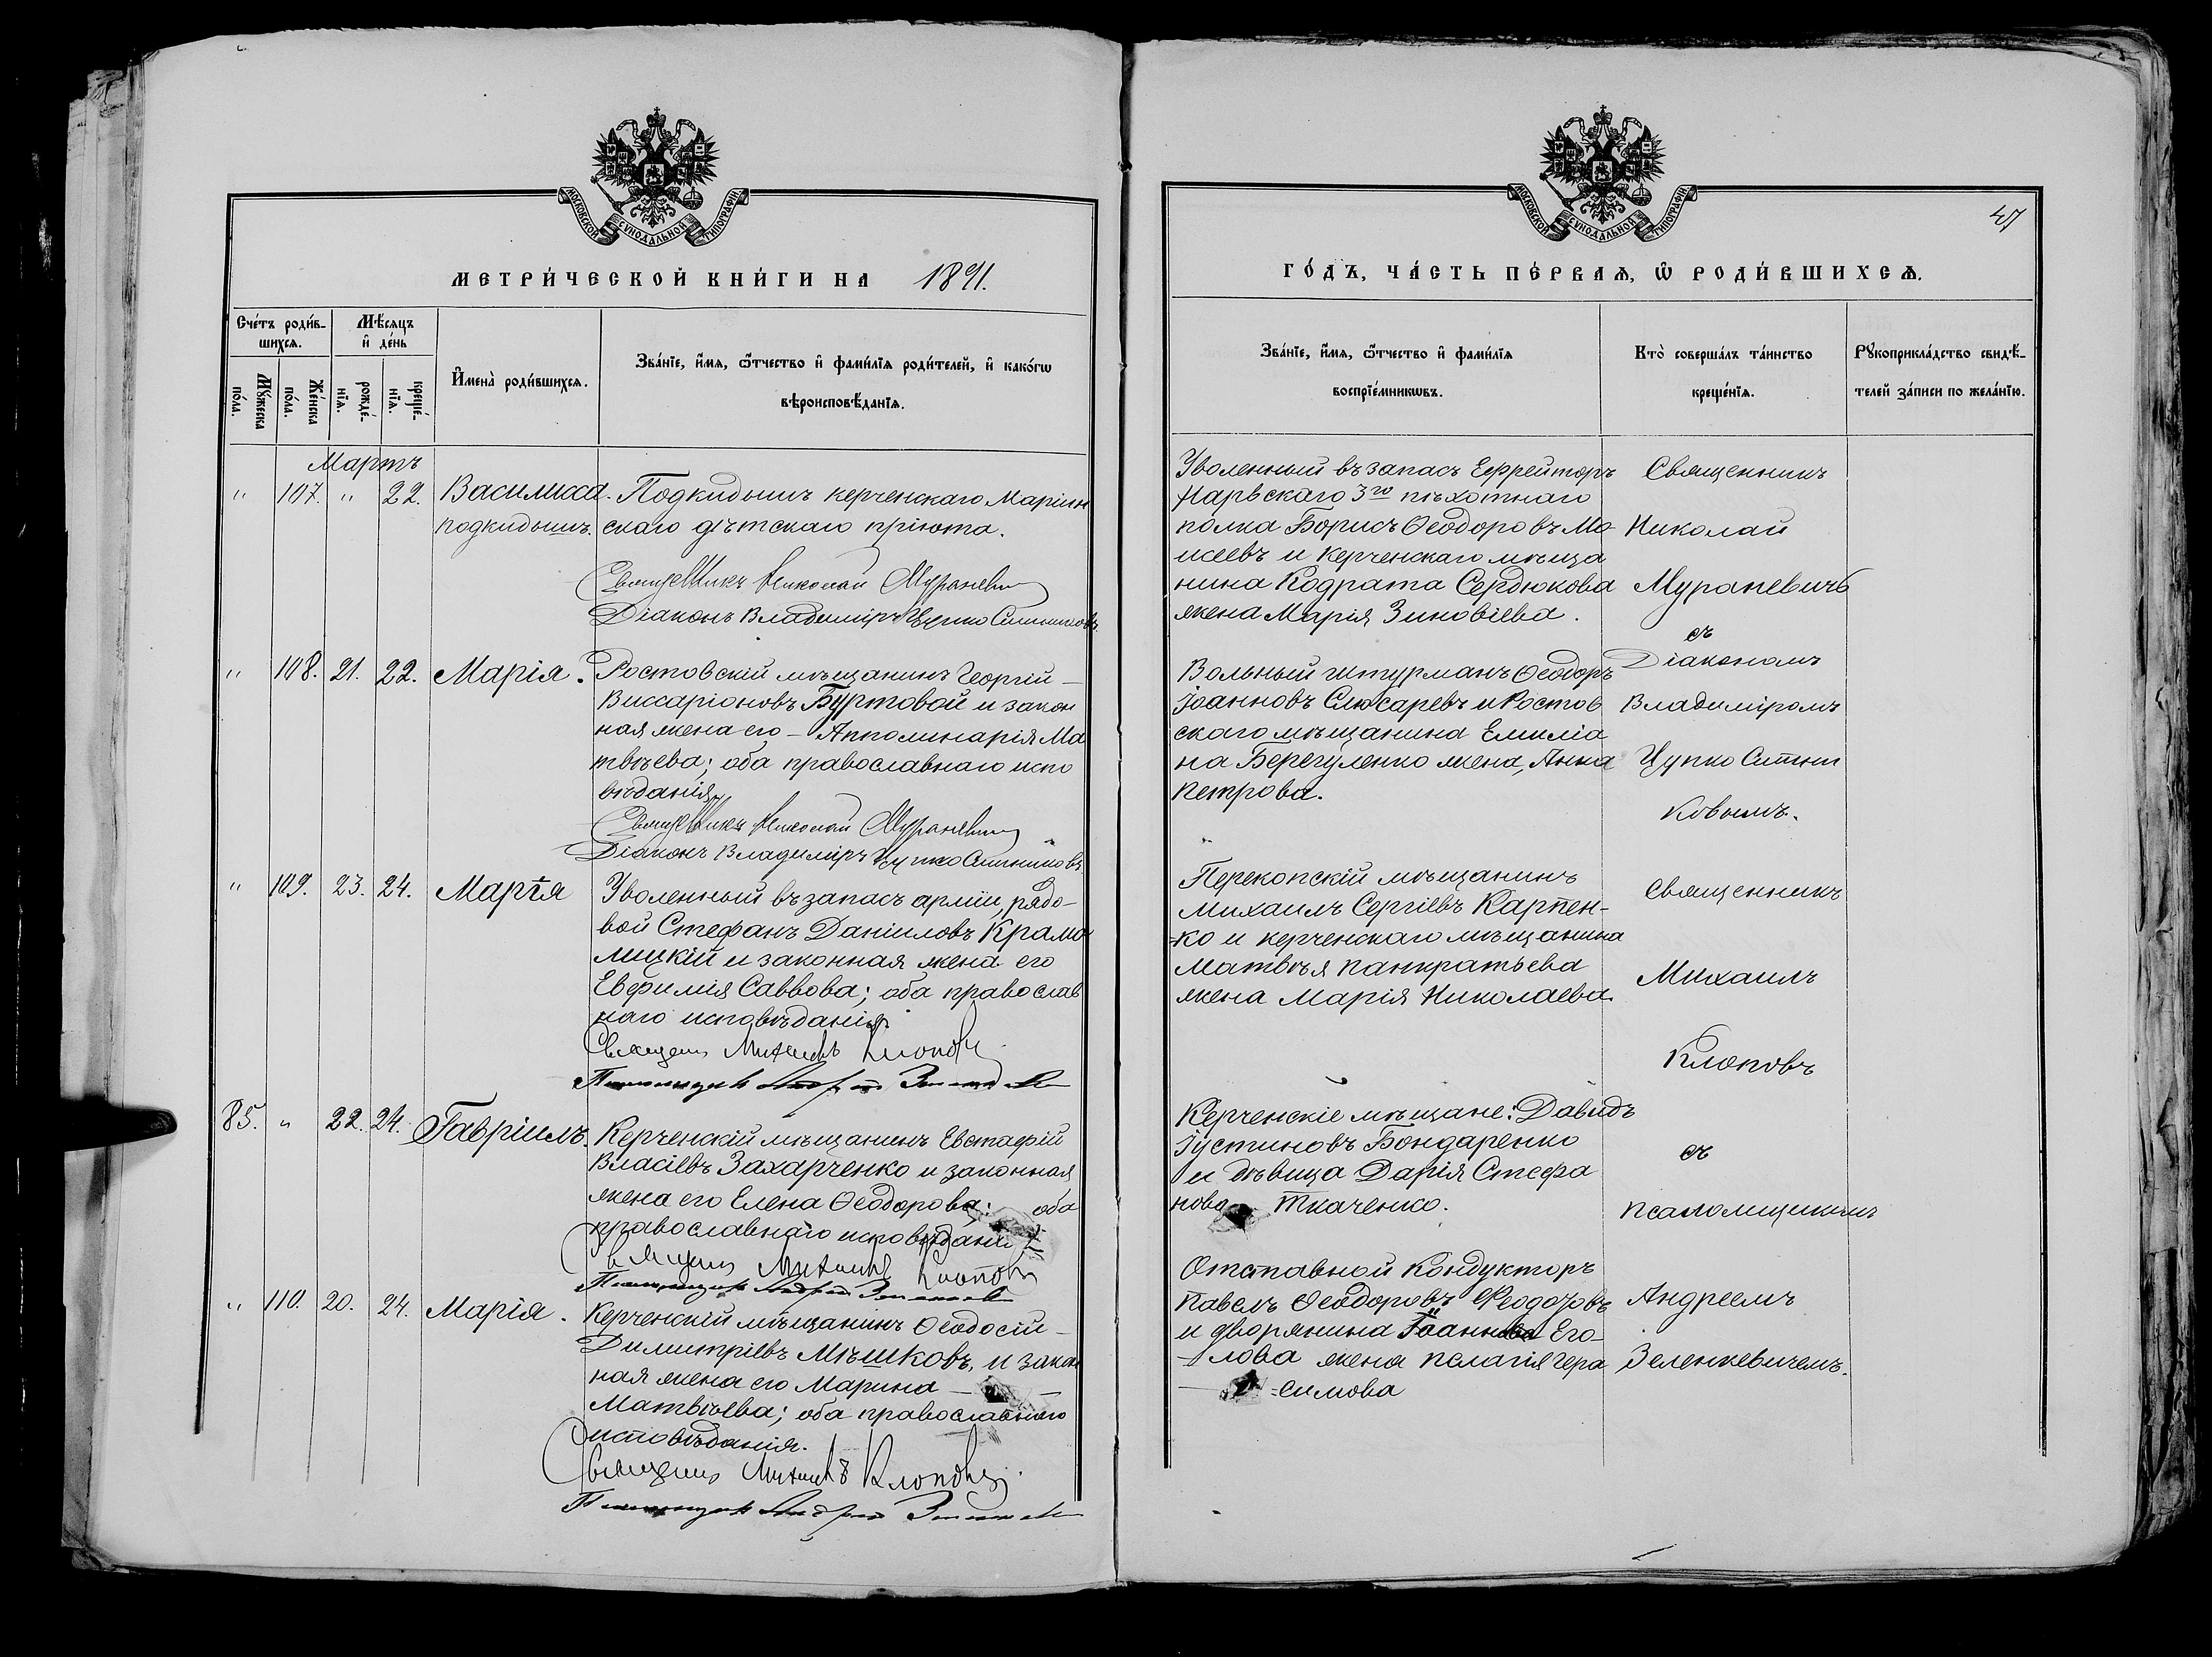 МОСКОВСКОЙ СѴНОДАЛЬНОЙ ТИПОГРАФІИ
МЕТРИ́ЧЕСКОЙ КНИ́ГИ НА 1891.
Сче́тъ роди́в-
шихсѧ.
Мѣ́сѧцъ
и҆ де́нь
Мꙋ́жеска
по́ла.
Же́нска
по́ла.
рожде́-
нїѧ.
креще́-
нїѧ.
И҆мена̀ роди́вшихсѧ.
Зва́нїе, и҆́мѧ, ѻ҆́тчество и҆ фами́лїѧ роди́телей, и҆ како́гѡ
вѣроисповѣ́данїѧ.
Мартъ
" 107. " 22. Василисса.
подкидышъ.
Подкидышъ керченскаго Маріин
скаго дѣтскаго пріюта.
Священникъ Николай Мураневич
Діаконъ Владиміръ Цупко Ситниковъ
" 108. 21. 22. Марія.
Ростовскій мѣщанинъ Георгій –
Виссаріоновъ Буртовой и закон
ная жена его – Апполинарія Ма
твѣева; оба православнаго испо
вѣданія.
Священникъ Николай Мураневич
Діаконъ Владиміръ Цупко Ситниковъ
" 109. 23. 24. Марія
Уволенный въ запасъ арміи, рядо-
вой Стефанъ Даніиловъ Крама
лицкій и законная жена его
Евфимия Саввова; оба православ
наго исповѣданія.
Священ Михаилъ Клоповъ
85. " 22. 24. Гавріилъ.
Керченскій мѣщанинъ Евстафій
Власіевъ Захарченко и законная
жена его Елена Ѳеодорова: оба
православнаго исповѣданія
Священ Михаилъ Клоповъ
" 110. 20. 24. Марія.
Керченскій мѣщанинъ Ѳеодосій –
Димитріевъ Мѣшковъ, и закон
ная жена его Марина –
Матвѣева; оба православнаго
исповѣданія.
Священ Михаилъ Клоповъ
МОСКОВСКОЙ СѴНОДАЛЬНОЙ ТИПОГРАФІИ
47
ГО́ДЪ, ЧА́СТЬ ПЕ́РВАѦ, Ѡ҆ РОДИ́ВШИХСѦ.
Зва́нїе, и҆́мѧ, ѻ҆́тчество и҆ фами́лїѧ
воспрїе́мникѡвъ.
Кто̀ соверша́лъ та́инство
креще́нїѧ.
Рꙋкоприкла́дство свидѣ́-
телей за́писи по жела́нїю.
Уволенный въ запасъ Ефрейторъ
Нарвскаго 3го пѣхотнаго
полка Борисъ Ѳеодоровъ Мо
исеевъ и керченскаго мѣща
нина Кодрата Сердюкова
жена Марія Зиновіева.
Священникъ
Николай
Мураневичъ
съ
Діакономъ
Владиміромъ
Цупко Ситни
ковымъ.
Вольный штурманъ Ѳеодоръ
Іоанновъ Слюсаревъ и Ростов
скаго мѣщанина Емиліа
на Берегуленко жена, Анна
Петрова.
Перекопскій мѣщанинъ
Михаилъ Сергіевъ Карпен-
-ко и керченскаго мѣщанина
Матвѣя Панкратьева
жена Марія Николаева.
Священникъ
Михаилъ
Клоповъ
съ
псаломщикомъ
Андреемъ
Зеленкевичемъ.
Керченскіе мѣщане: Давидъ
Іустиновъ Бондаренко
и дѣвица Дарія Стефа
нова Ткаченко.
Отставной кондукторъ
Павелъ Ѳеодоровъ
и дворянина Іоанна Его-
лова жена Пелагія Гера
-симова